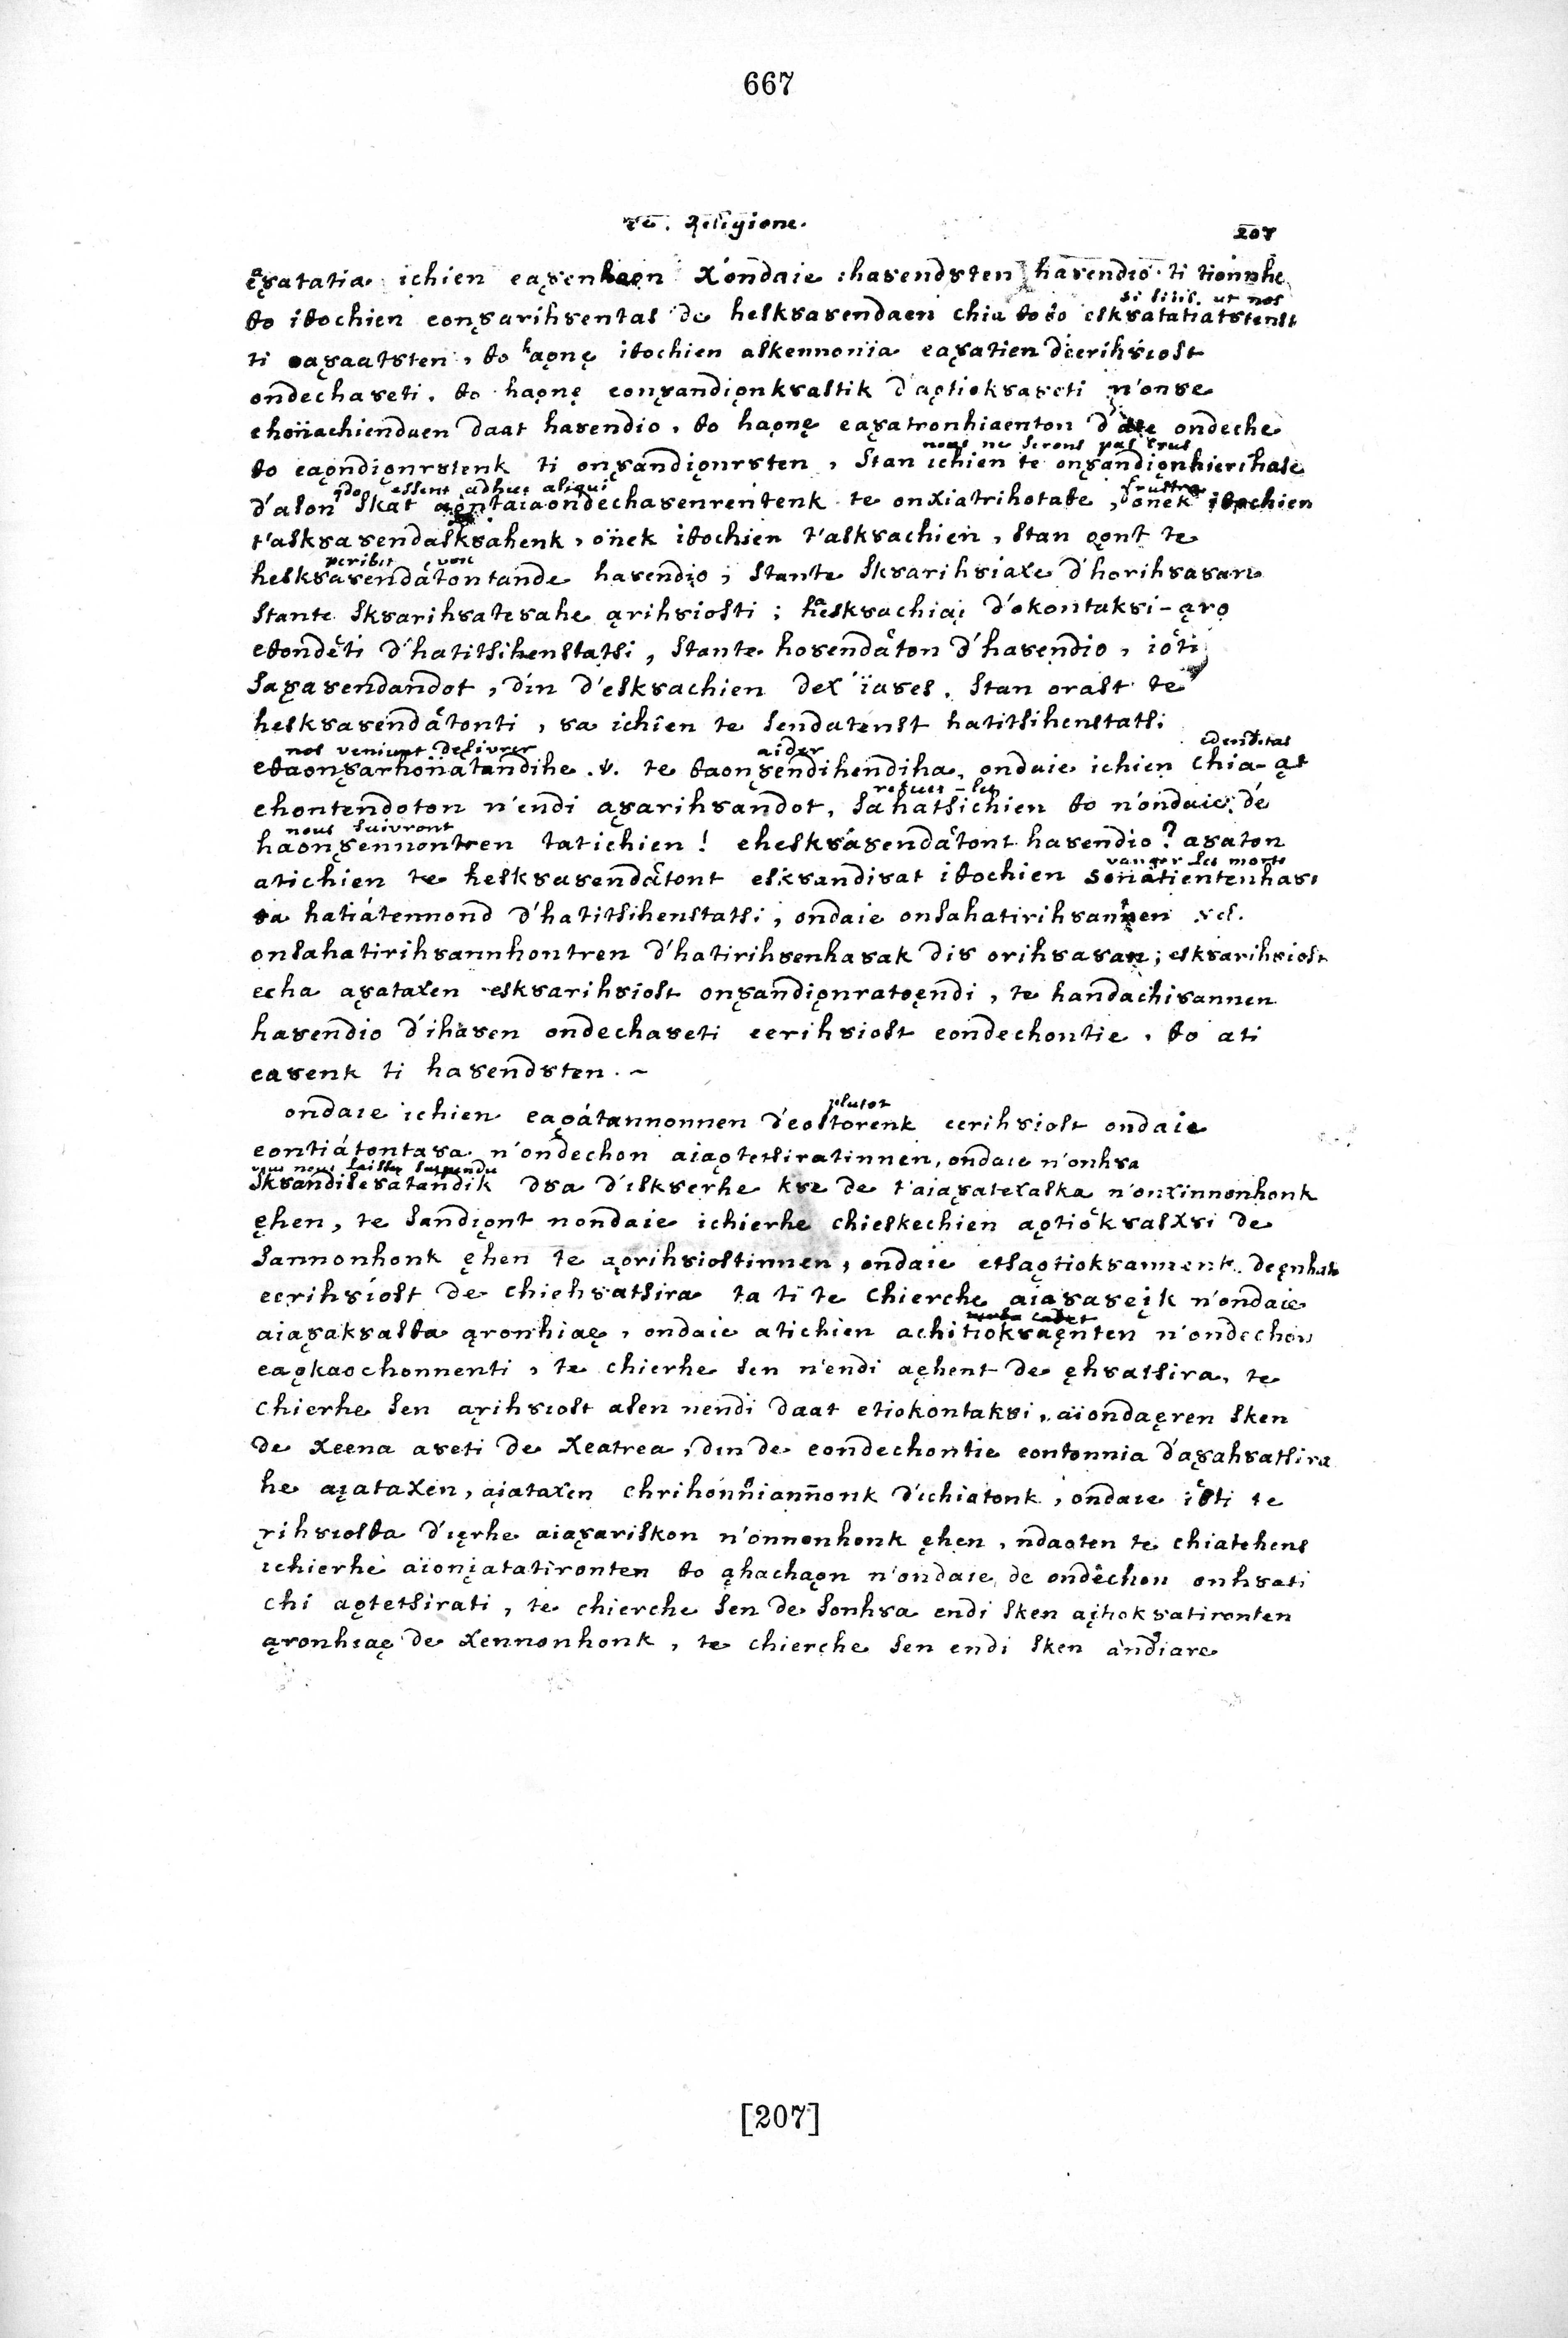 667
De Religione. 207
ęȣatatia ichien eaȣenheon χ'ondaie ihaȣendȣten haȣendio ti tionnhe
θo iθochien eonȣarihȣentas de heskȣaȣendaen chia θo θo eskȣatatiatȣtenst
si sitis. ut nos
ti oaȣaatȣten, θo haǫnę iθochien askennonïa eaȣatien d'eerihȣiost
ondechaȣeti. θo haǫnę eonȣandiǫnkȣastik d'aǫtiokȣaȣeti n'onȣe
ehoñachiendaen daat haȣendio, θo haǫnę eaȣatronhiaenton d' ondeche
nous ne serons pas crus
θo eaǫndiǫnrȣtenk ti onȣandiǫnrȣten, stan ichien te onȣandiǫnhierihase
qdo essent adhuc aliqui frustra
d'ason skat aǫntaiaondechaȣenrentenk te onχiatrihotaθe, d'onek iθochien
t'askȣaȣendaskȣahenk, onek iθochien t'askȣachien, stan ǫǫnt te
peribit vox
heskȣaȣendatontande haȣendio; stante skȣarihȣiaχe d'horihȣaȣan
stante skȣarihȣateȣahe ąrihȣiosti; haeskȣachiaį d'okontakȣi-ąrǫ
eθondeti d'hatitsihenstatsi, stante hoȣendaton d'haȣendio, ioti
saȣaȣendandot, din d'eskȣachien deχ'ïaȣes. stan oȣast te
heskȣaȣendatonti, ȣa ichien te sendatenst hatitsihenstatsi
nos veniunt delivrer aider
eθaonȣarhoñatandihe .v. te θaonȣendihendiha, ondaie ichien chia-ąt
refues-les
ehontendoton n'endi aȣarihȣandot, sahatsichien θo n'ondaie, de
nous suivront
haonȣennontren tatichien! eheskȣaȣendatont haȣendio? aȣaton
vanger les morts
atichien te heskȣaȣendatont eskȣandiȣat iθochien soñatientenhas
ȣa hatiatennond d'hatitsihenstatsi, ondaie onsahatirihȣannen vel.
onsahatirihȣannhontren d'hatirihȣenhaȣak diȣ orihȣaȣan; eskȣarihȣiost
echa aȣataχen eskȣarihȣiost onȣandiǫnratoęndi, te handachiȣannen
haȣendio d'ihaȣen ondechaȣeti eerihȣiost eondechontie, θo ati
eaȣenk ti haȣendȣten.~
plutot
ondaie ichien eaǫatannonnen d'eostorenk eerihȣiost ondaie
eontiatontaȣa n'ondechon aiaǫtetsiratinnen, ondaie n'onhȣa
vous nous laisses suspendu
skȣandiseȣatandik dȣa d'iskȣerhe kȣe de t'aiaȣateχaska n'onχinnonhonk
ęhen, te sandiǫnt nondaie ichierhe chieskechien aǫtiokȣasχȣi de
sannonhonk ęhen te ąorihȣiostinnen, ondaie etsaǫtiokȣannenk
eerihȣiost de chiehȣatsira ta ti te chierche aiaȣaȣeįk n'ondaie
turba cadet
aiaȣakȣasθa ąronhiaę, ondaie atichien achitiokȣaęnten n'ondechon
eaǫkaochonnenti, te chierhe sen n'endi aęhent de ęhȣatsira, te
chierhe sen ąrihȣiost asen nendi daat etiokontakȣi, aiondaęren sken
de χeena aȣeti de χeatrea, din de eondechontie eontonnia d'aȣahȣatsira
he aįataχen, aįataχen chrihonniannonk d'ichiatonk, ondaie ioti te
ȣrihȣiosθa d'ięrhe aiaȣariskon n'onnonhonk ęhen, ndaoten te chiatehens
ichierhe aïonįatatironten θo ąhachaǫn n'ondaie, de ondechon onhȣati
chi aǫtetsirati, te chierche sen de sonhȣa endi sken aįtiokȣatironten
ąronhiaę de χennonhonk, te chierche sen endi sken andiare
[207]